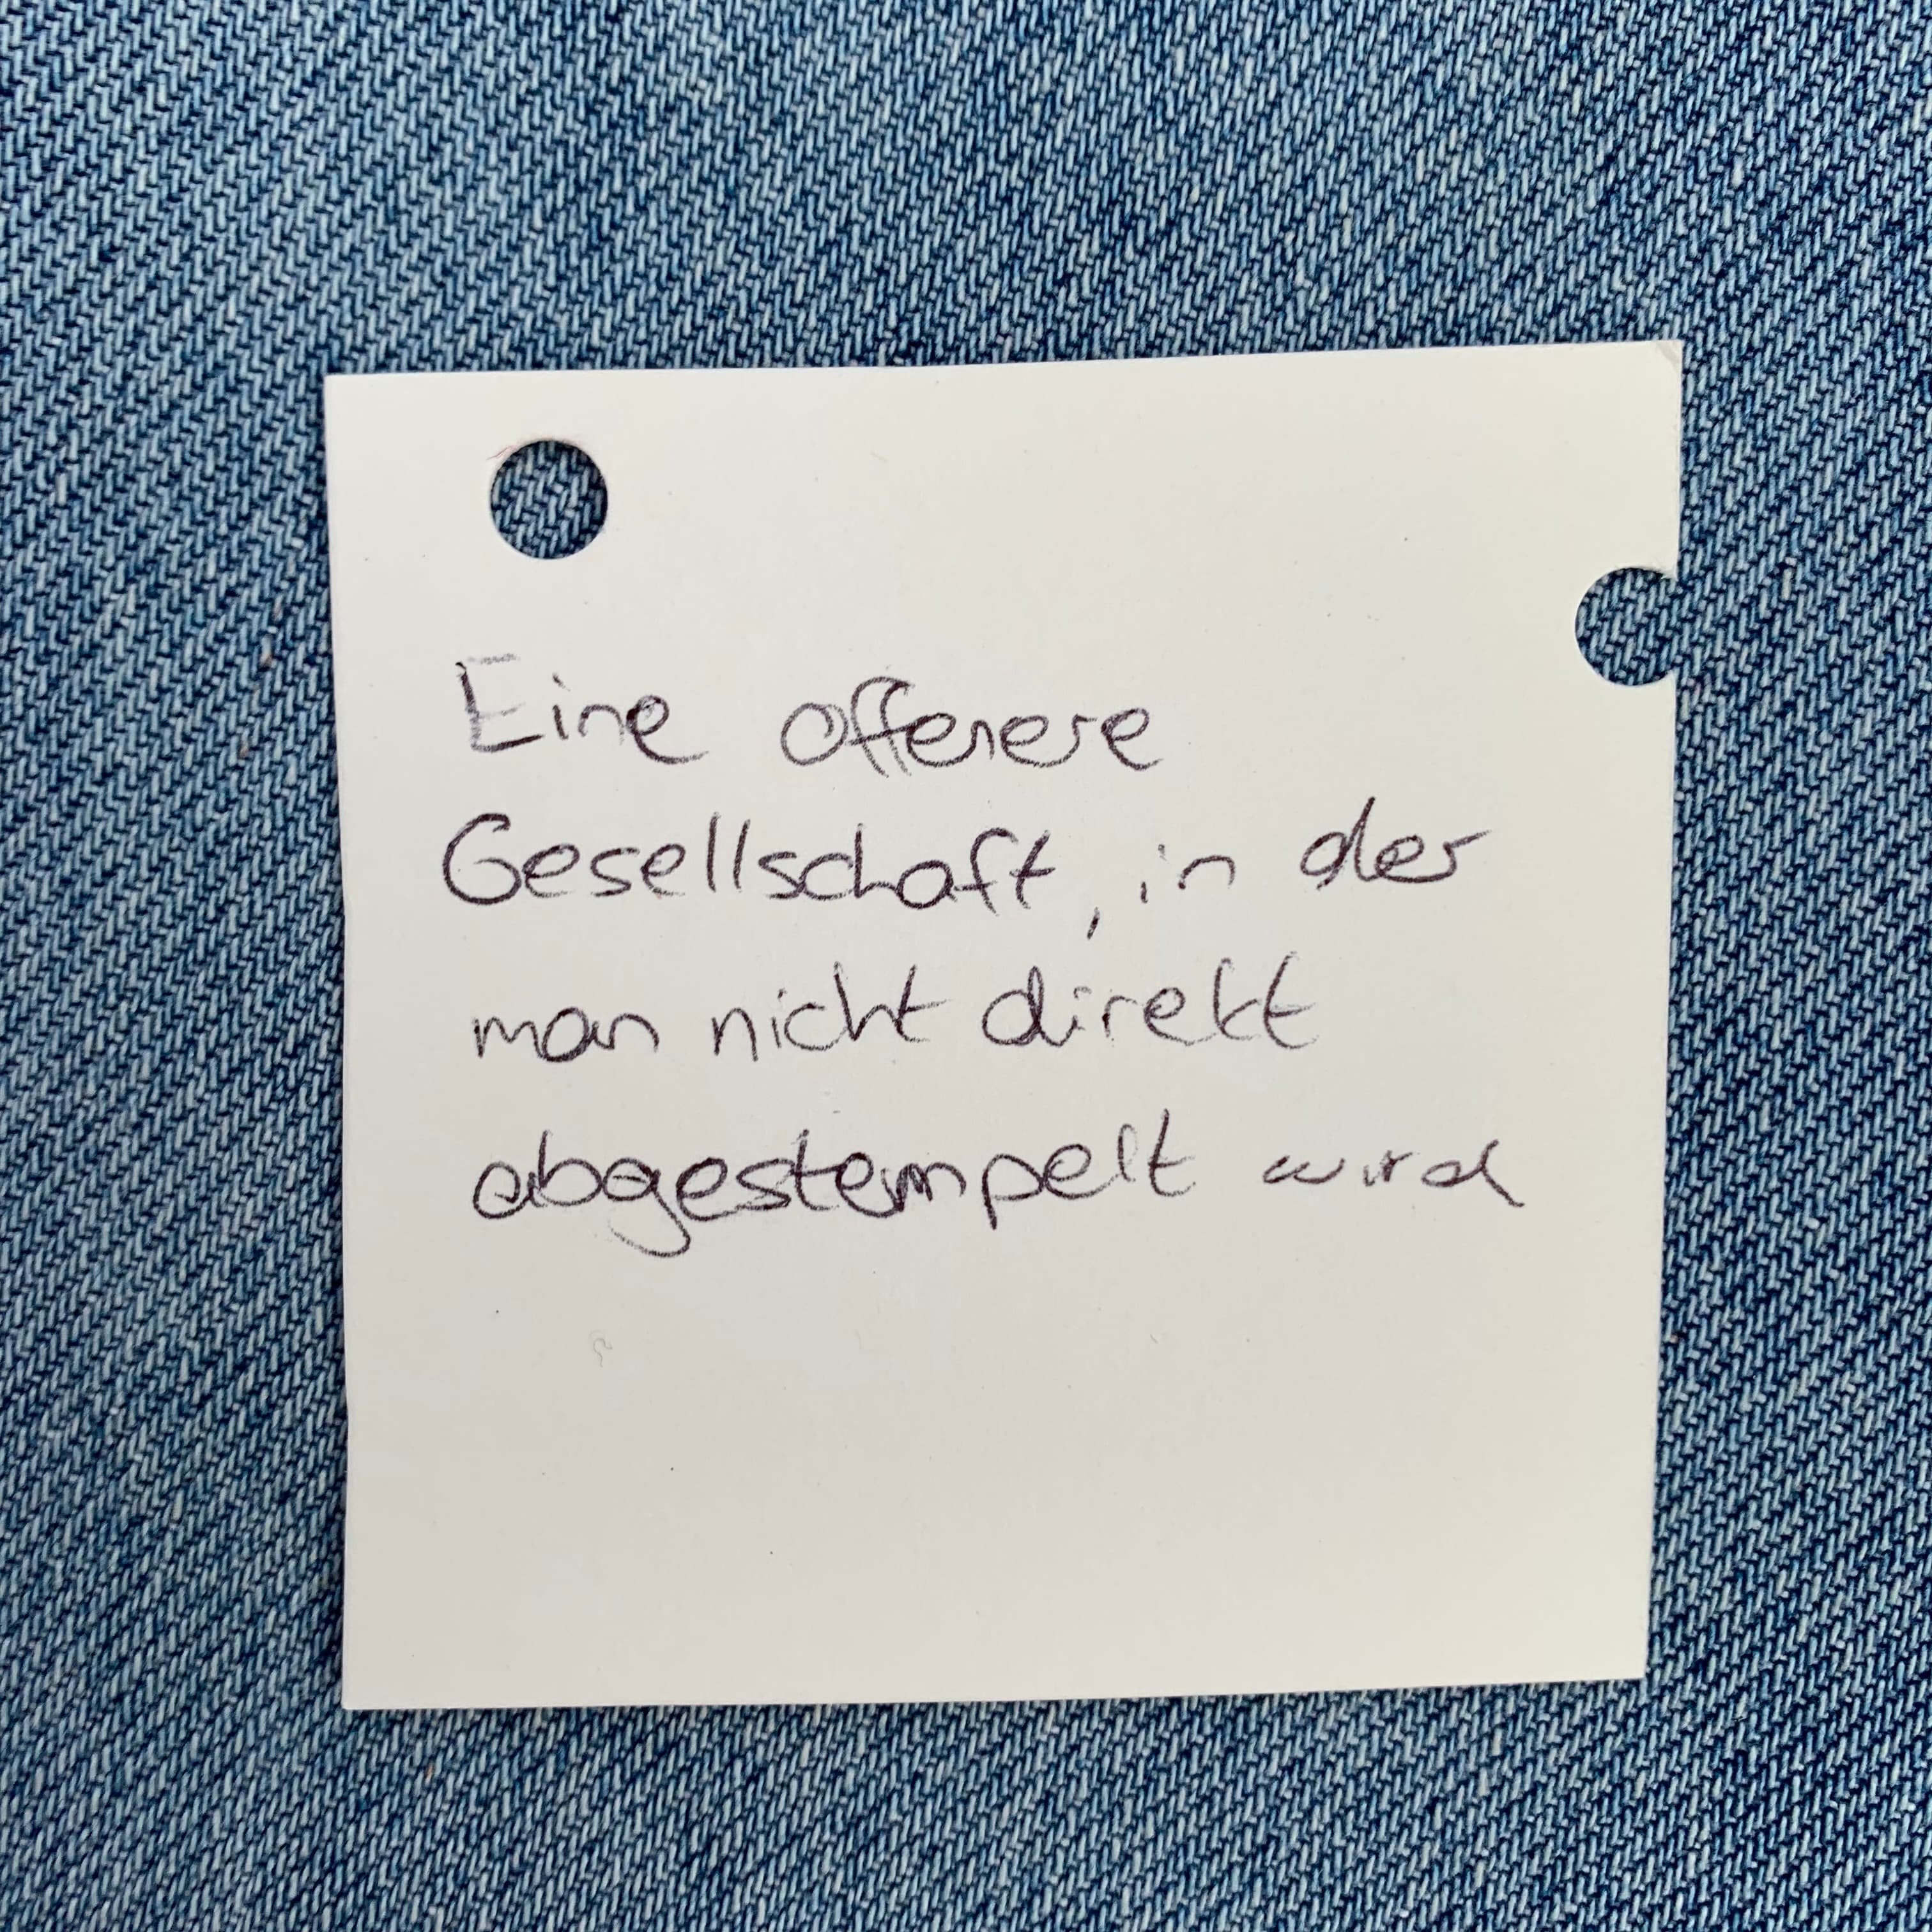 Eine offenere
Gesellschaft, in der
man nicht direkt
abgestempelt wird